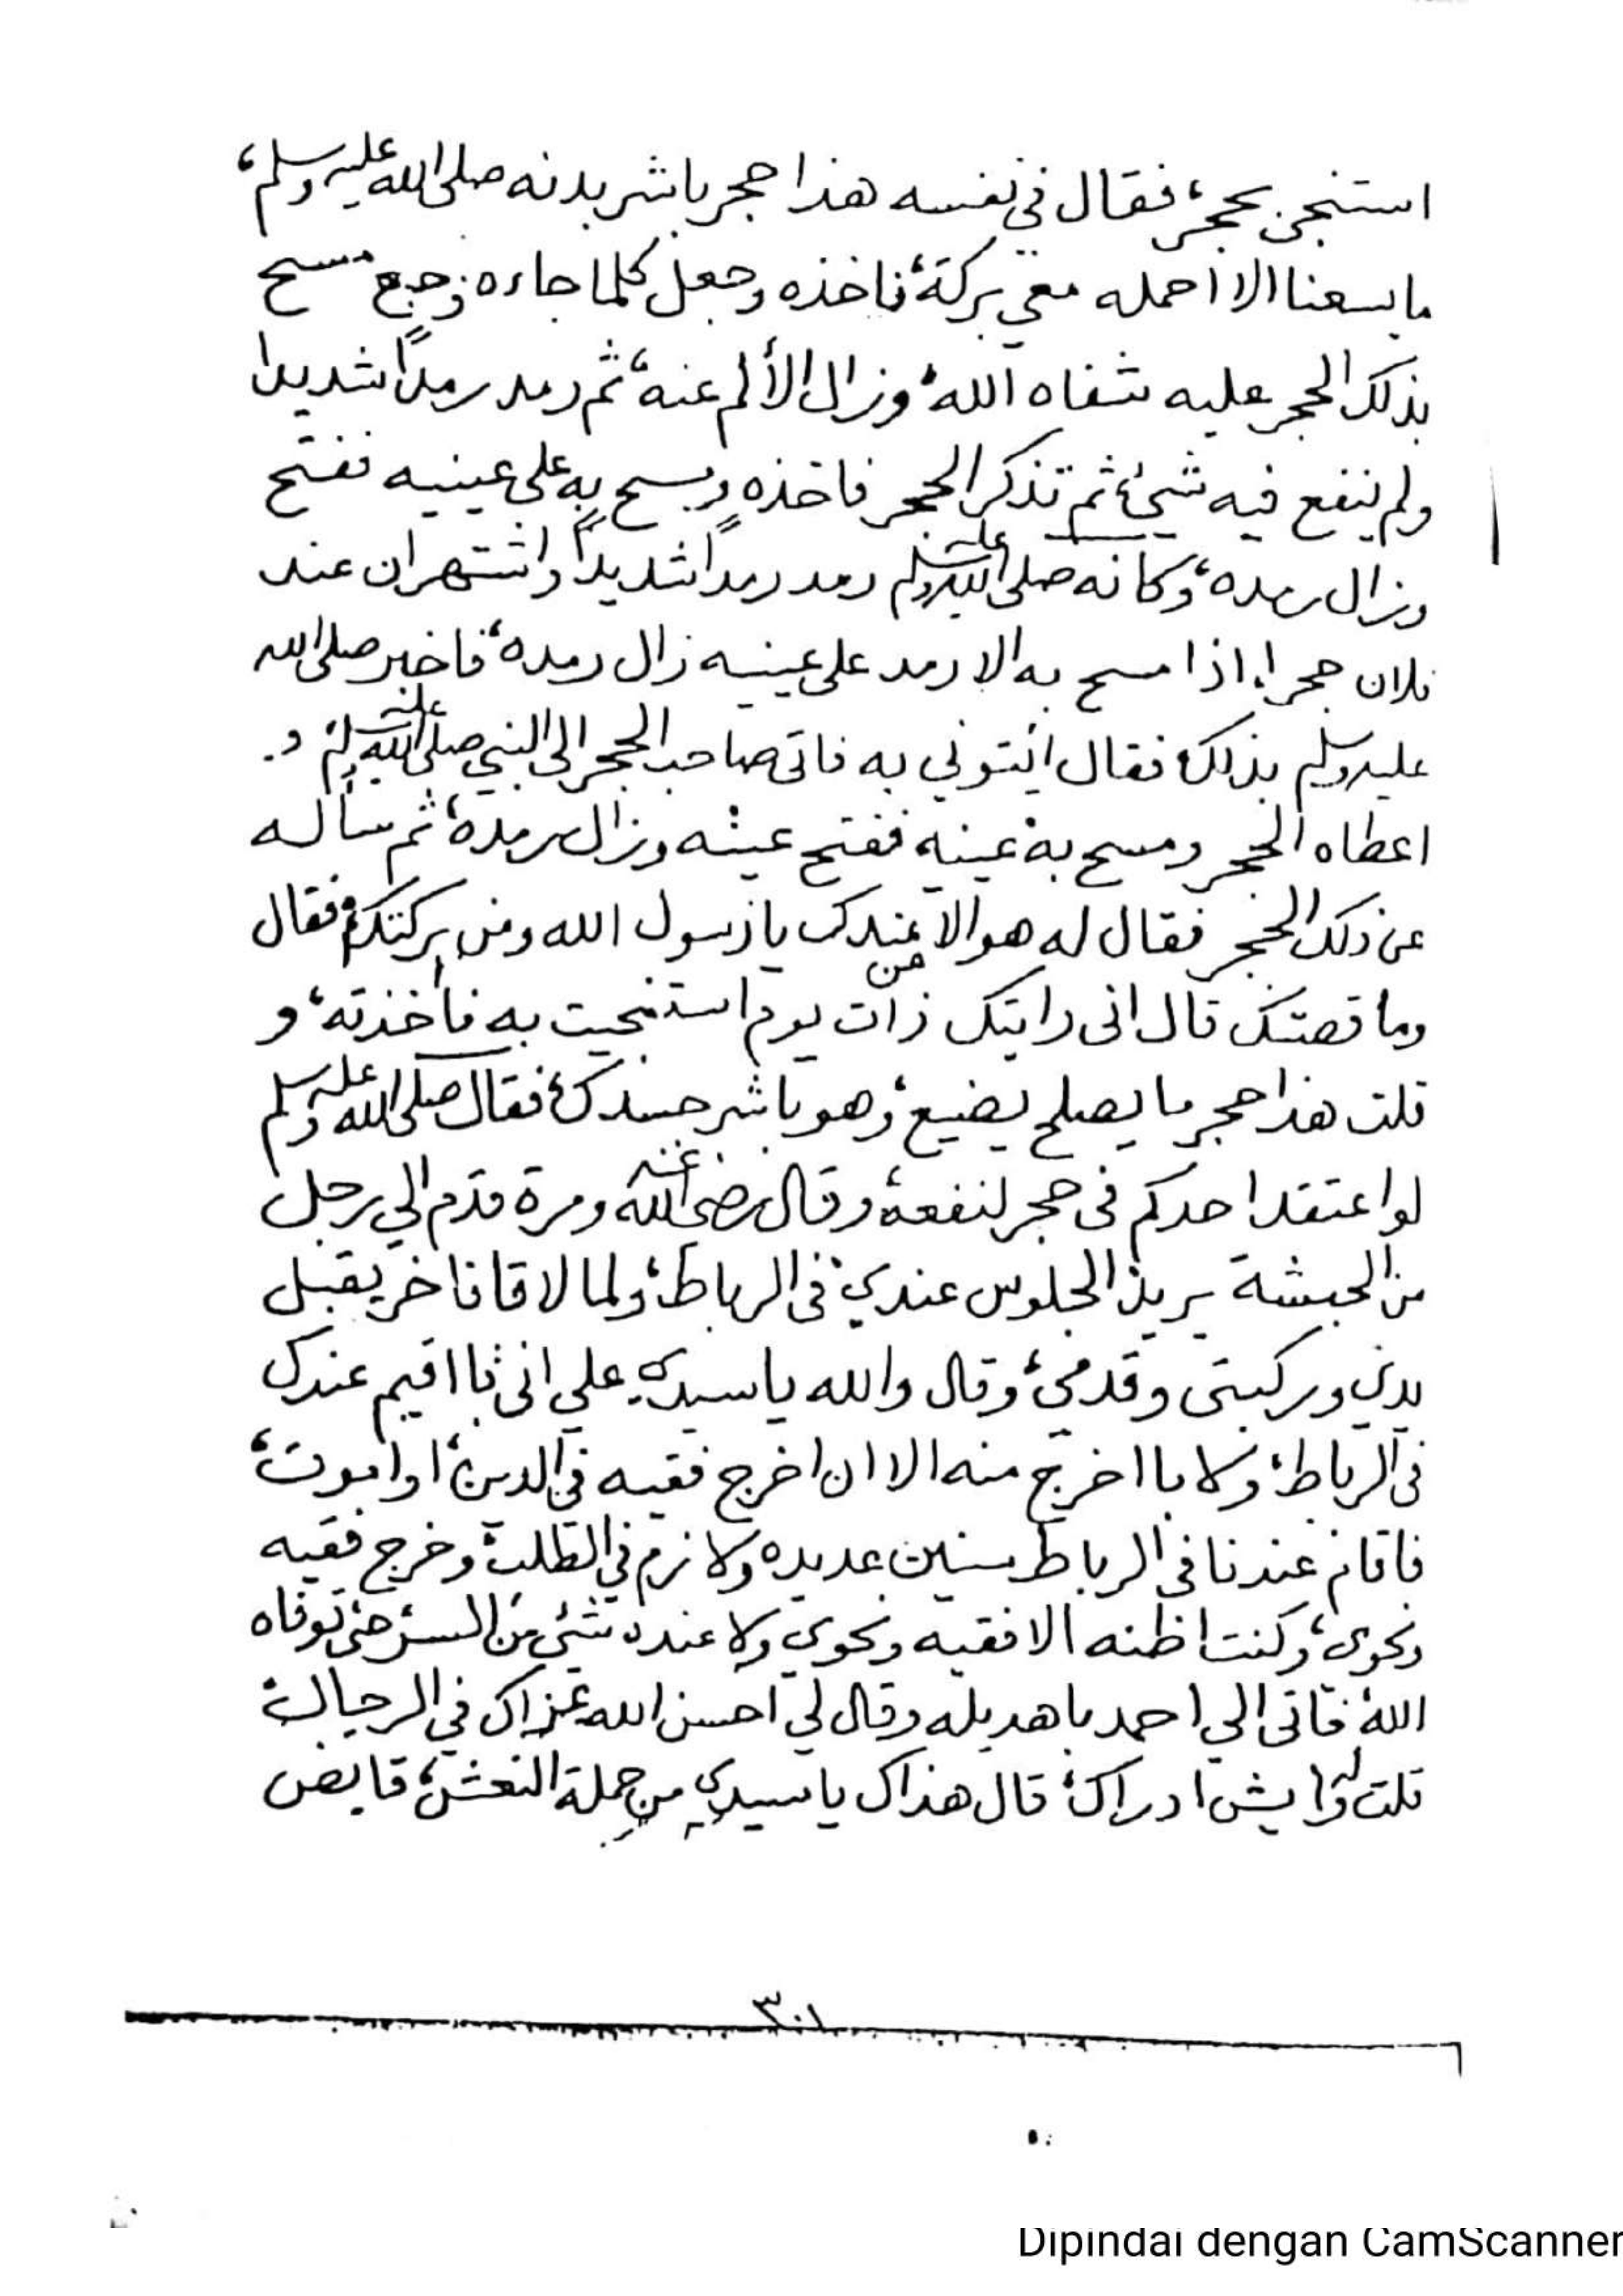 استنجى بحجر، فقال في نفسه هذا حجر باشر بدنه صلى الله عليه وسلم،
ما يسعنا الا احمله معي بركة، فاخذه وجعل كلما جاءه وجع مسح
بذلك الحجر عليه شفاه الله، وزال الألم عنه، ثم رمد رمداً شديدا
ولم ينفع فيه شيئ ثم تذكر الحجر فاخذه ويسح به على عينيه ففتح
وزال رمده، وكانه صلى الله عليه وسلم رمد رمداً شديداً واشتهر ان عند
فلان حجرا، اذا مسح به الارمد على عينيه زال رمده، فاخبر صلى الله
عليه وسلم بذلك فقال ائتوني به فاتى صاحب الحجر الى النبي صلى الله عليه وسلم و
اعطاه الحجر ومسح به عينه ففتح عينه وزال رمده، ثم سأله
عن ذلك الحجر فقال له هو الا من عندك يا رسول الله ومن بركتك، فقال
وما قصتك قال انى رايتك ذات يوم استنجيت به فأخذته، و
قلت هذا حجر ما يصلح يضيع، وهو باشر جسدك، فقال صلى الله عليه وسلم
لو اعتقد احدكم في حجر لنفعه، وقال رضي الله عنه ومرة قدم الي رجل
من الحبشة يريد الجلوس عندي، في الرباط، ولما لاقانا خر يقبل
يدي وركبتى وقدمى، وقال والله يا سيدي علي انى با اقيم عندك
في الرباط، ولا با اخرج منه الا ان اخرج فقيه في الدين، او اموت،
فاقام عندنا في الرباط سنين عديده ولازم في الطلب، وخرج فقيه
ونحوى، وكنت اظنه الا فقيه ونحوي ولا عنده شئ من السر حتى توفاه
الله، فاتى الي احمد باهديله وقال لي احسن الله عزاك في الرجال،
قلت له وايش ادراك، قال هذاك يا سيدي من جملة النعش، قابض
٣٠١
Dipindai dengan CamScanner